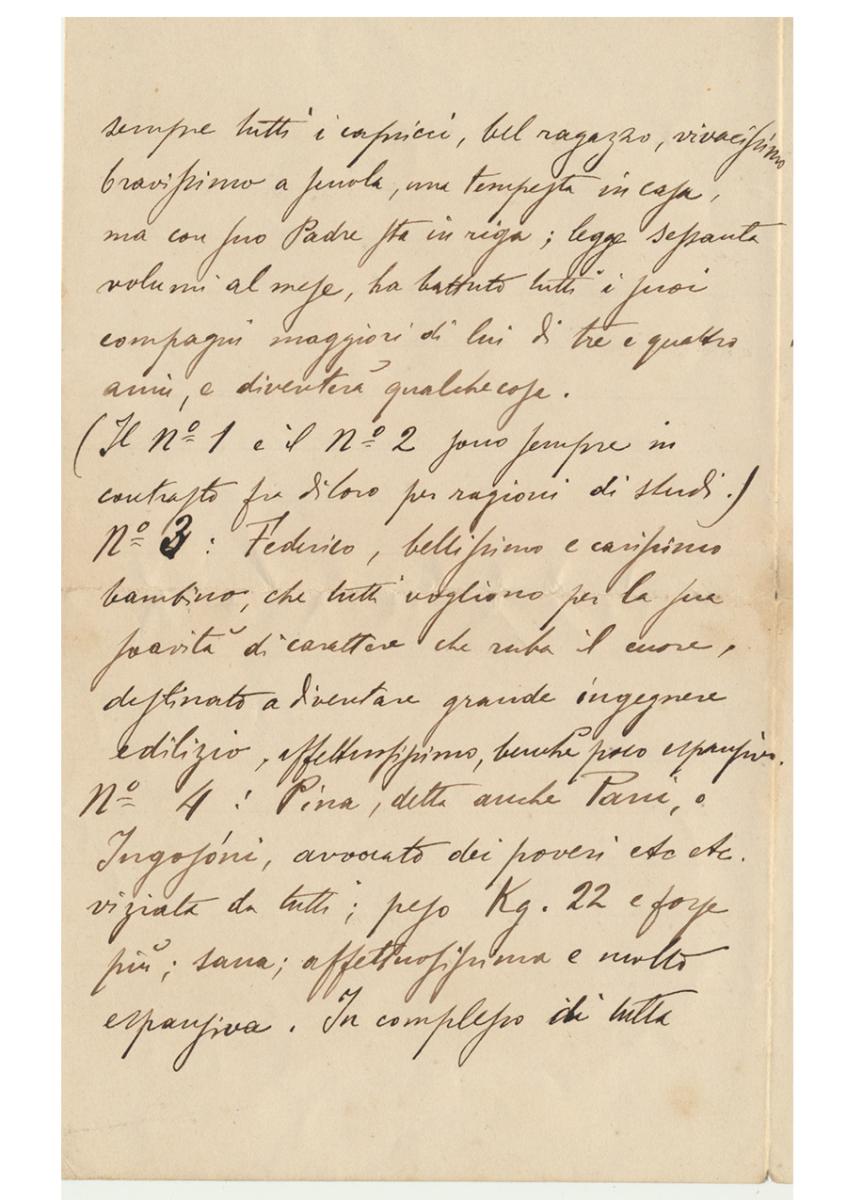 sempre tutti i capricci, bel ragazzo, vivacissimo
bravissimo a scuola, una tempesta in casa,
ma con suo Padre sta in riga; legge sessanta
volumi al mese, ha battuto tutti i suoi
compagni maggiori di lui di tre e quattro
anni, e diventerà qualche cosa.
(Il Nº 1 e il Nº 2 sono sempre in
contrasto fra di loro per ragioni di studi.)
Nº 3: Federico, bellissimo e carissimo
bambino, che tutti vogliono per la sua
soavità di carattere che ruba il cuore,
destinato a diventare grande ingegnere
edilizio, affettuosissimo, benchè poco espansivo.
Nº 4: Pina, detta anche Pani, o
Ingosóni, avvocato dei poveri etc etc.
viziata da tutti; peso Kg. 22 e forse
più; sana; affettuosissima e molto
espansiva. In complesso di tutta